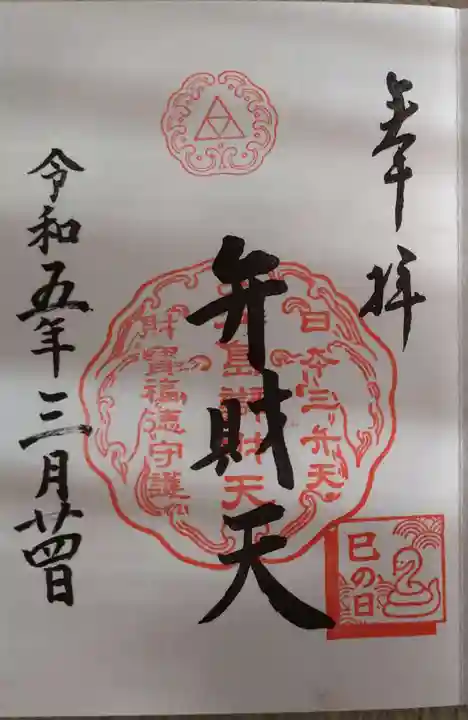 奉拝
日本三弁天
弁財天
島辨財天
財寶福徳守護
令和五年三月廿四日
巳の日